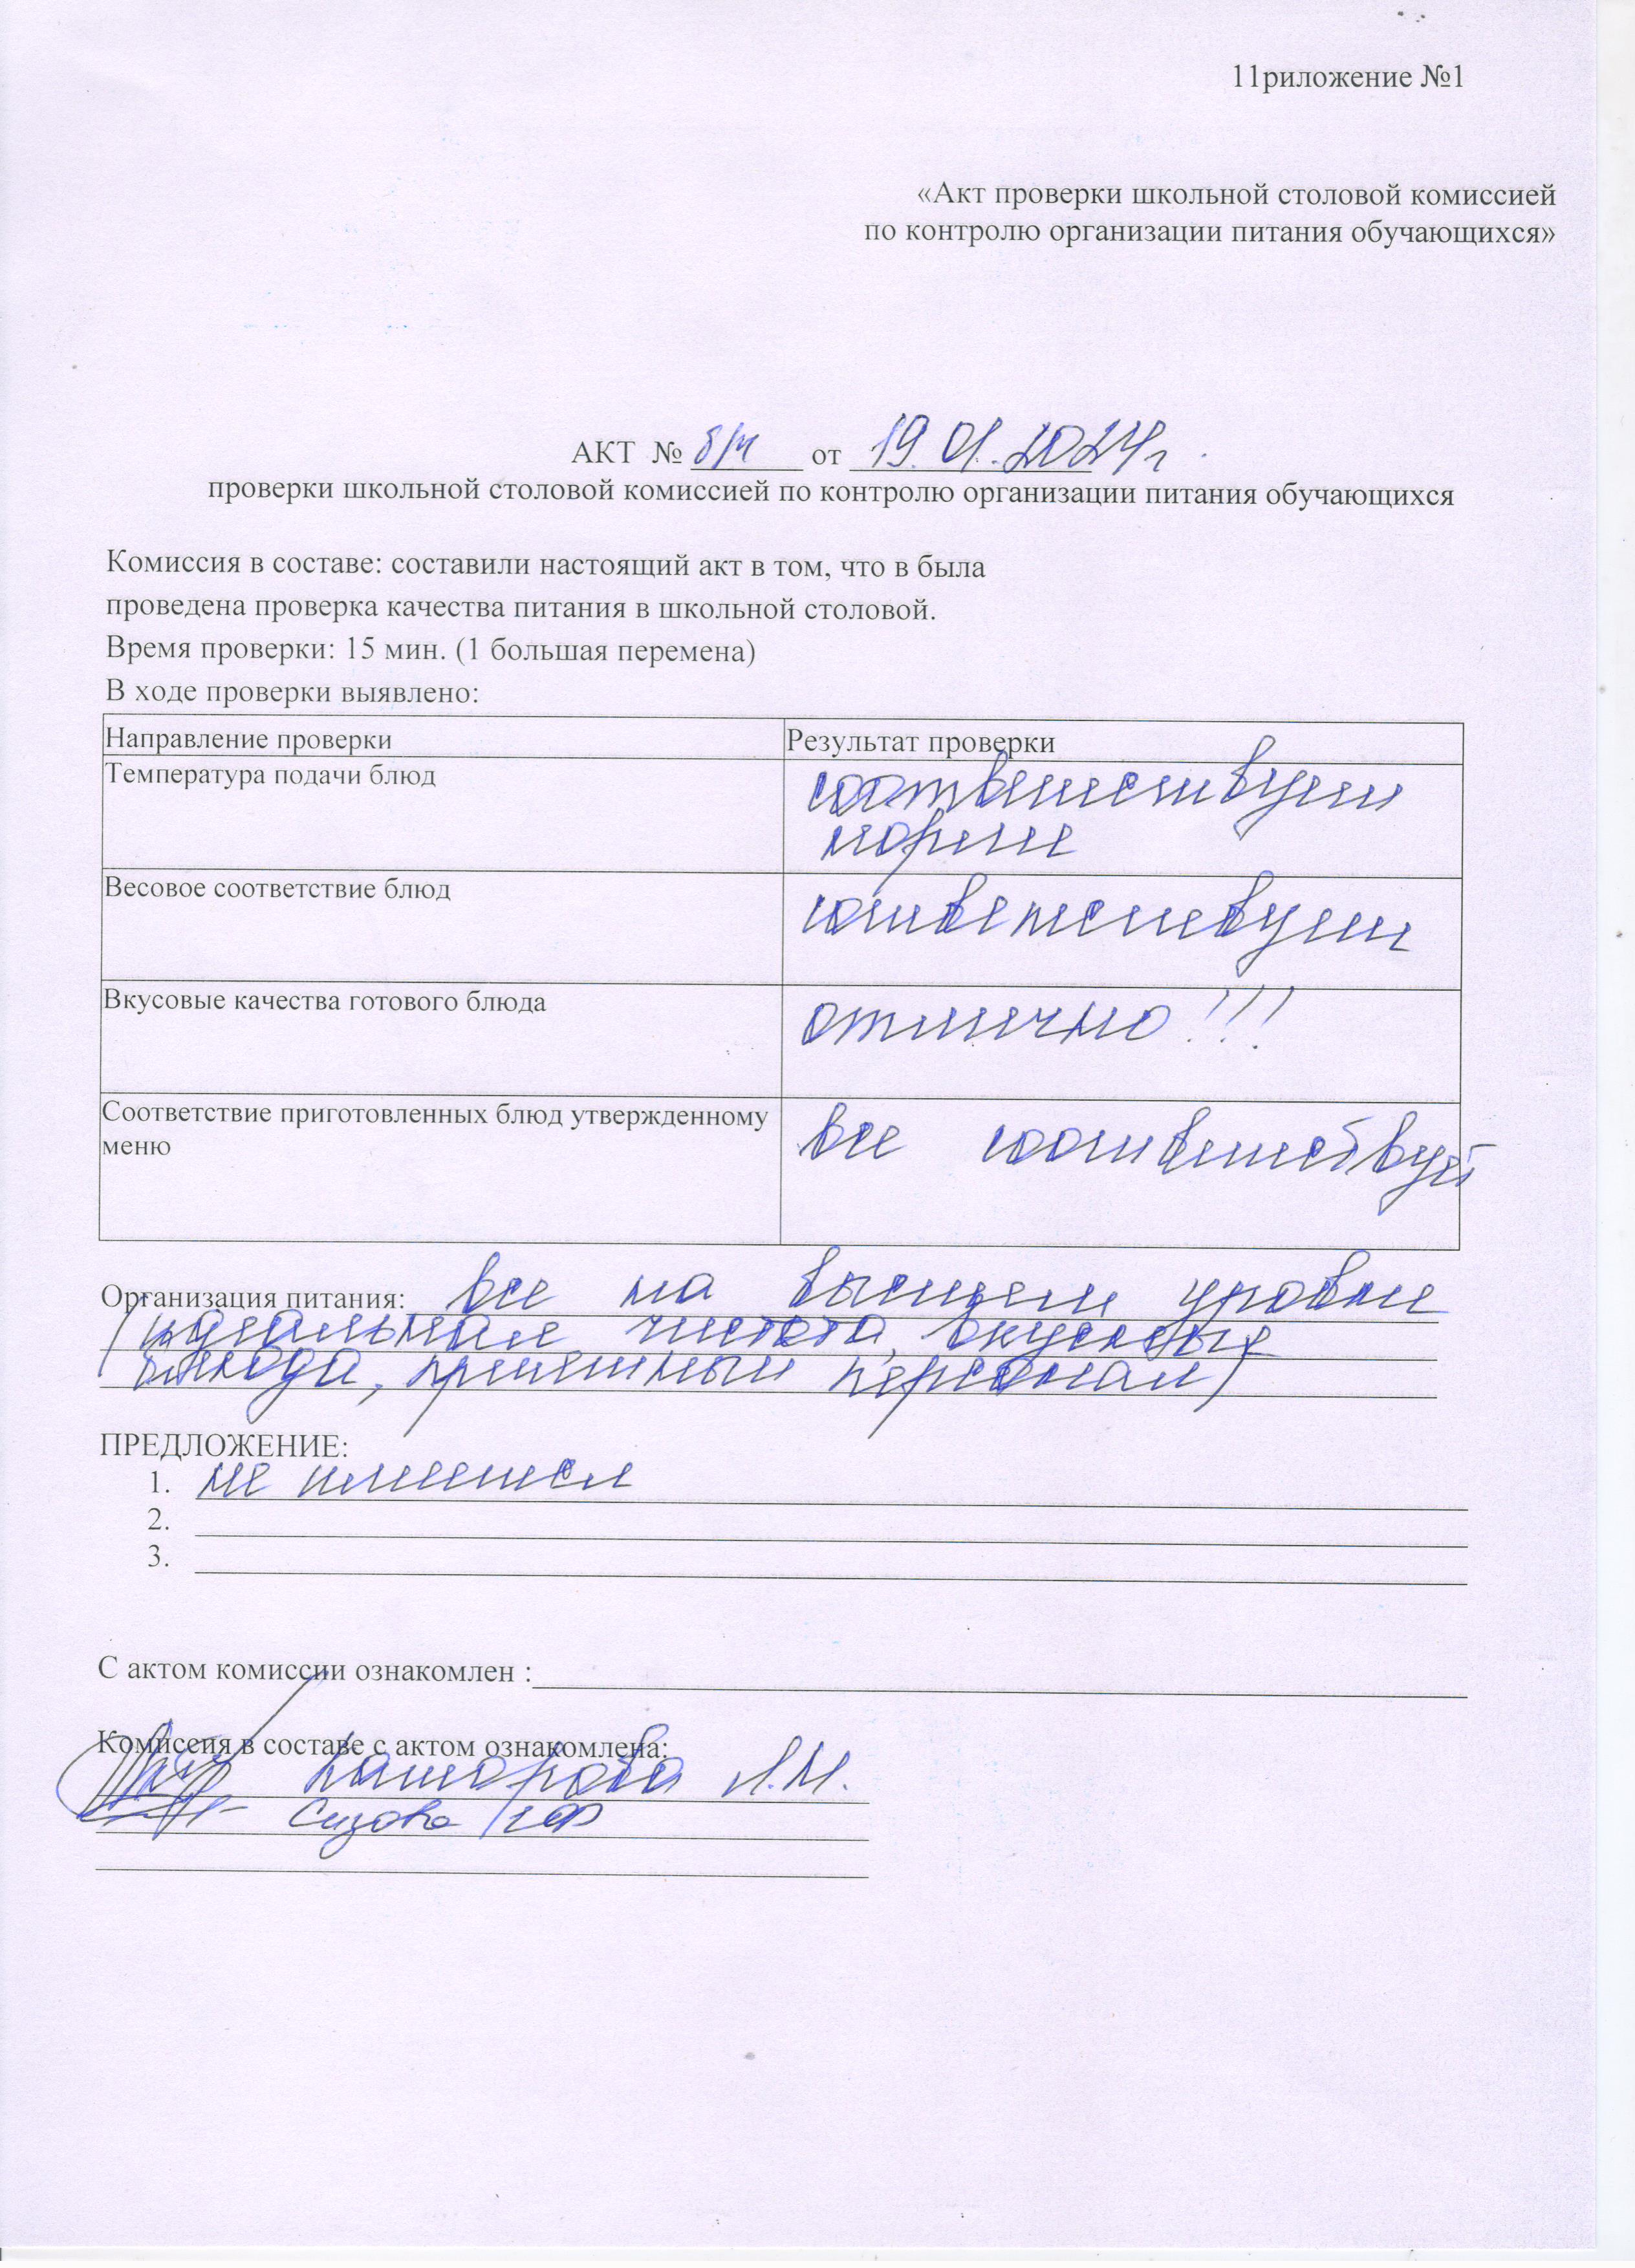 11риложение №1
«Акт проверки школьной столовой комиссией
по контролю организации питания обучающихся»
АКТ № б/н от 19.01.2024г
проверки школьной столовой комиссией по контролю организации питания обучающихся
Комиссия в составе: составили настоящий акт в том, что в была
проведена проверка качества питания в школьной столовой.
Время проверки: 15 мин. (1 большая перемена)
В ходе проверки выявлено:
Направление проверки Результат проверки
Температура подачи блюд соответствует
норме
Весовое соответствие блюд соответствует
Вкусовые качества готового блюда отлично!!!
Соответствие приготовленных блюд утвержденному
меню все соответствует
Организация питания: все на высшем уровне
(идеальная чистота, вкусные
блюда, приятный персонал)
ПРЕДЛОЖЕНИЕ:
1. не имеется
2.
3.
С актом комиссии ознакомлен :
Комиссия в составе с актом ознакомлена:
Л.М.
Сизова